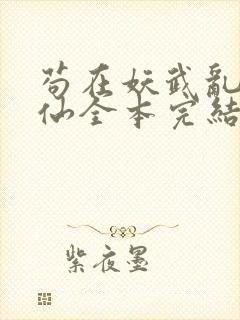 苟在妖武亂
仙全本完結
紫夜墨